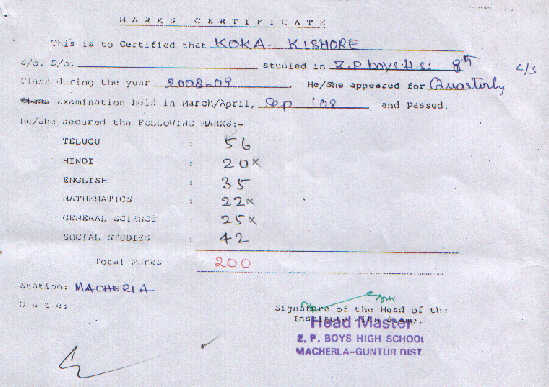 MARKS CERTIFICATE
This is to Certified that KOKA KISHORE
S/o. D/o. studied in Z.P boys H.s: 8th c/s
Class during the year 2008-09 He/She appeared for Quarterly
Examination held in March/April, Sep '08 and Passed.
He/She secured the FOLLOWING MARKS:-
TELUGU : 56
HINDI : 20x
ENGLISH : 35
MATHEMATICS : 22x
GENERAL SCIENCE : 25x
SOCIAL STUDIES : 42
Total Marks 200
Station: MACHERLA
Date:
Signature of the Head of the
Head Master
Z. P. BOYS HIGH SCHOOL
MACHERLA-GUNTUR DIST.